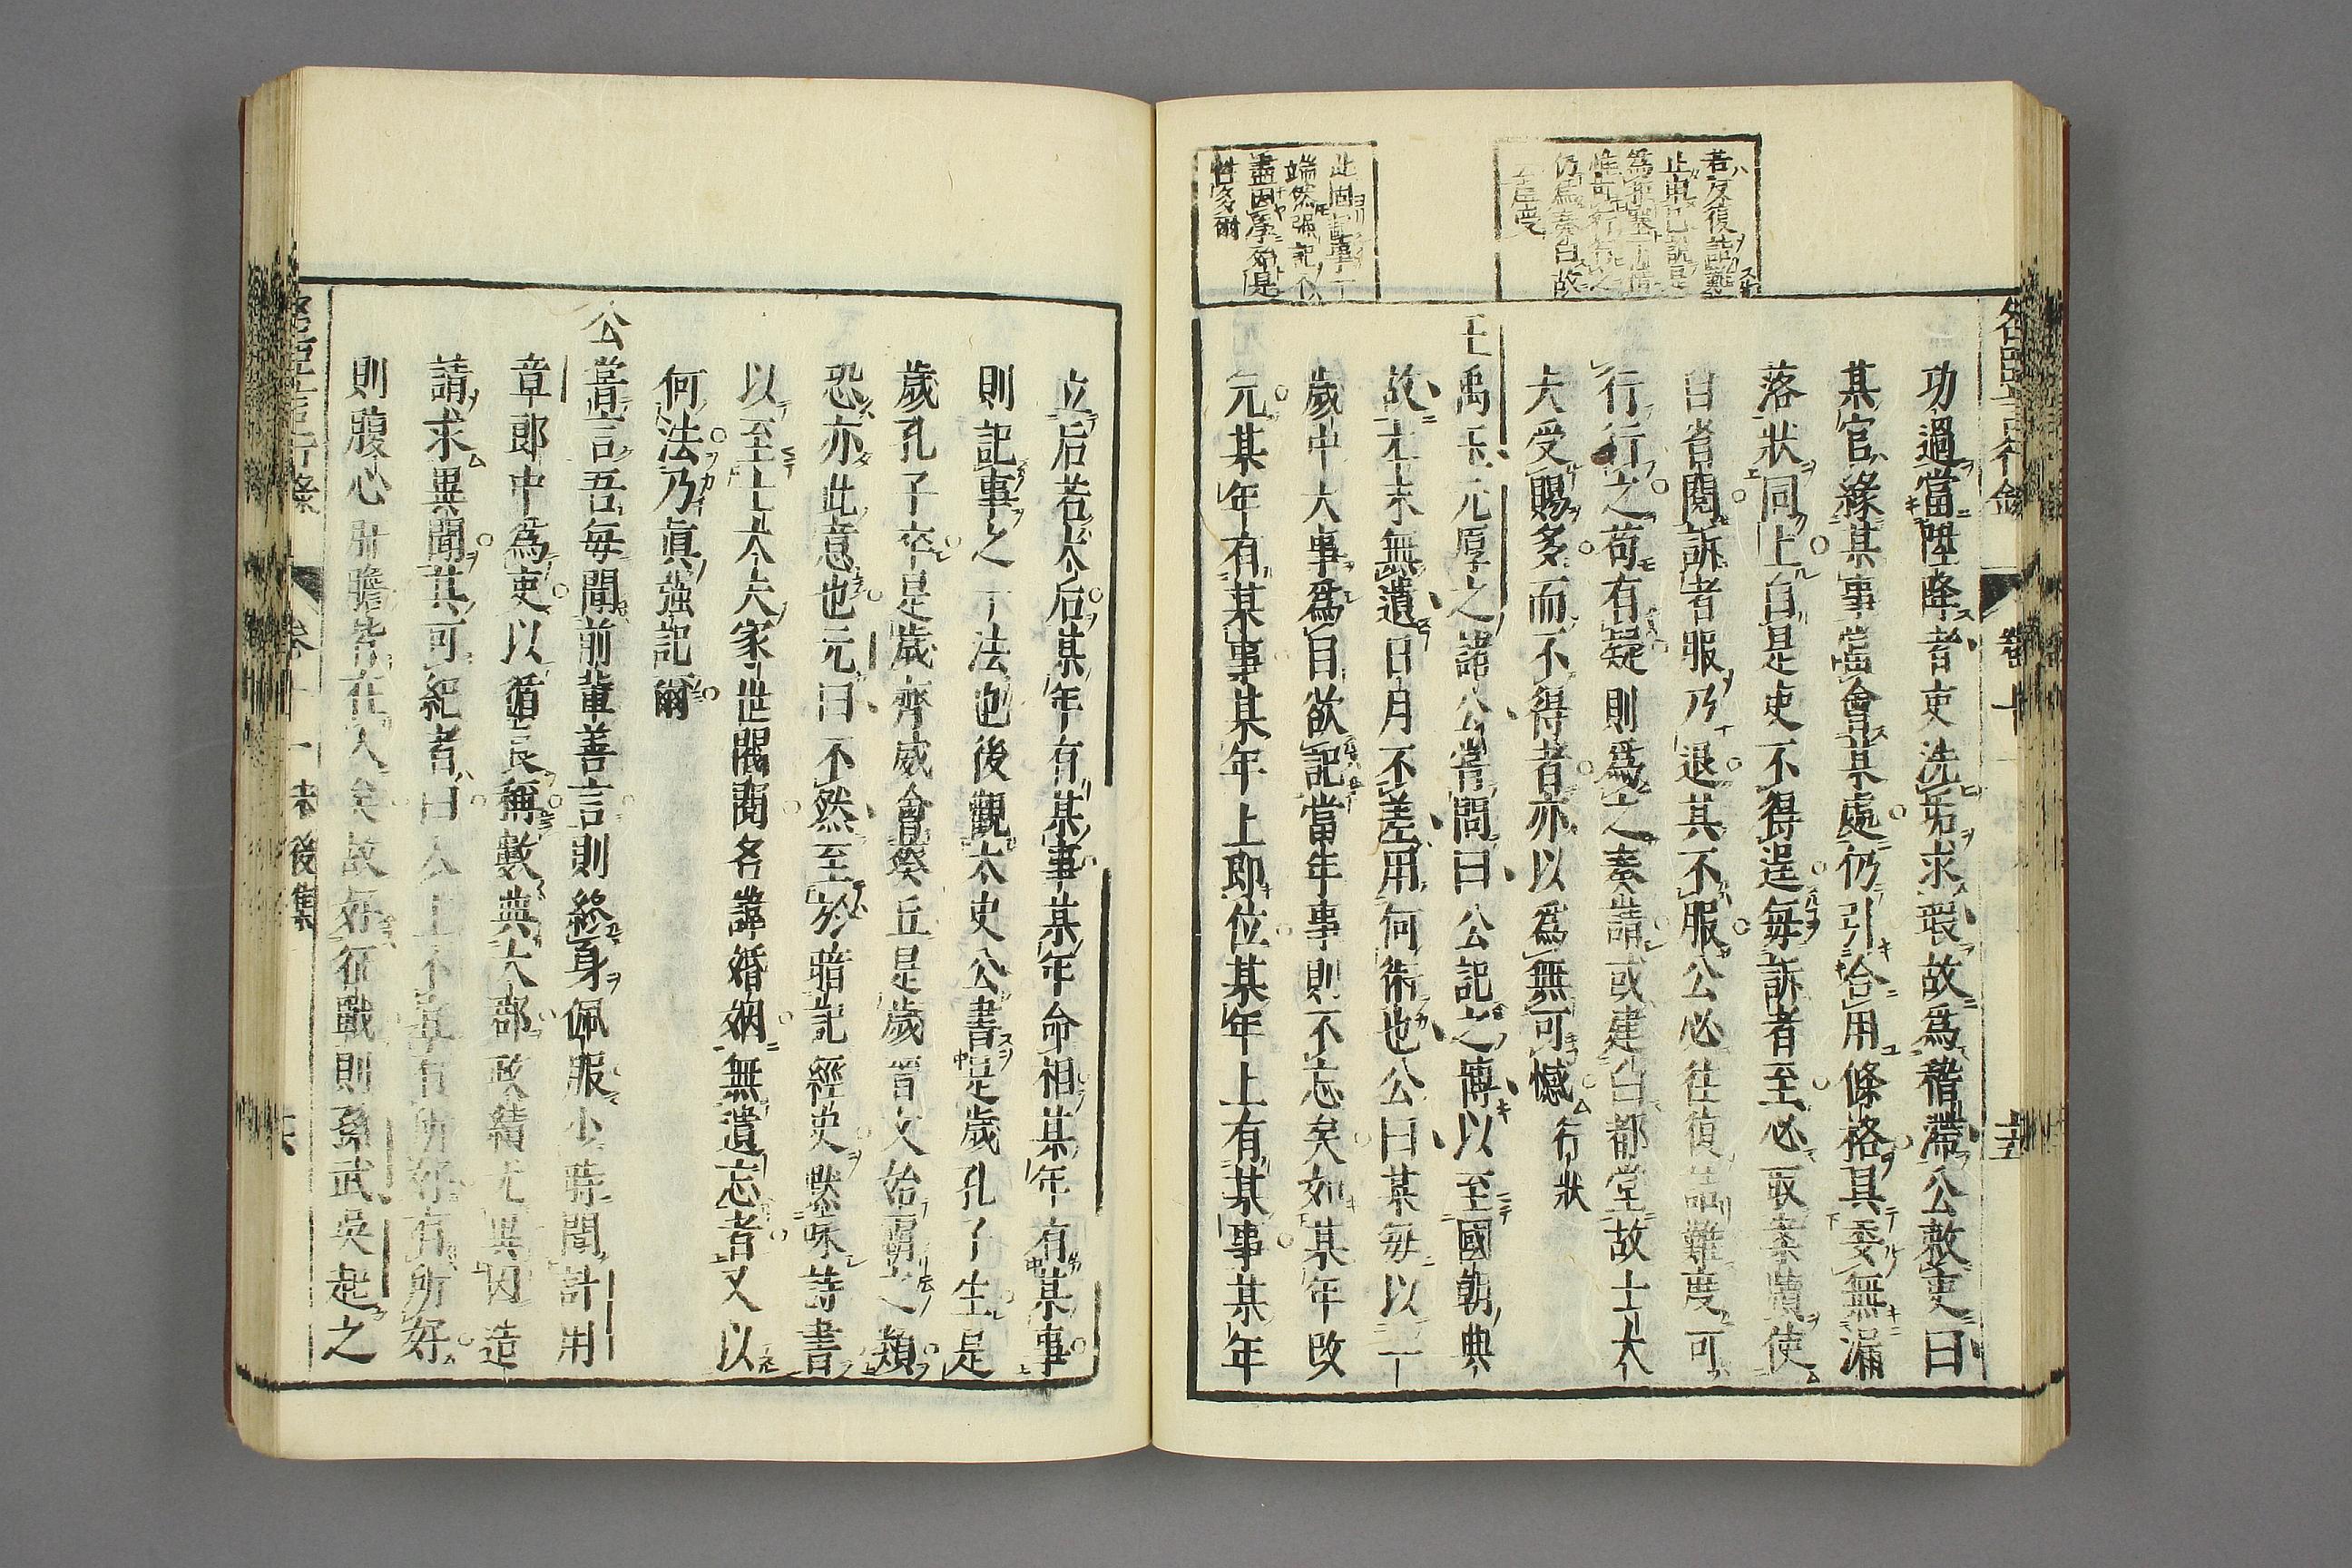 若反復詰難
仍爲奏白故
端然强記
盡因學而是
性多爾
功過當陞降者吏洗垢求瑕故爲稽滯公敕吏曰
某官緣某事當會某處仍引合用條格具委無漏
落狀同上自是吏不得逞每訴者至必取案牘使
自省閱訴者服乃退其不服公必往復詰難度可
行行之苟有疑則爲之奏請或建白都堂故士大
夫受賜多而不得者亦以爲無可憾 行狀
王禹玉元厚之諸公嘗問曰公記之博以至國朝典
故本末無遺日月不差用何術也公曰某每以一
歲中大事爲目欲記當年事則不忘矣如某年改
元某年有某事某年上即位某年上有某事某年
立后若太后某年有某事某年命相某年有某事
則記事之一法也後觀太史公書是歲孔子生是
歲孔子卒是歲齊威會葵丘是歲晉文始霸之類
恐亦此意也元曰不然至於暗記經史默味詩書
以至士大夫家世閥閱名諱婚姻無遺忘者又以
何法乃眞强記爾
公嘗言吾每聞前輩善言則終身佩服小時聞計用
章郎中爲吏以循良稱數典大郡政績尤異因造
請求異聞其可紀者曰人上不宜有所好有所好
則腹心肝膽皆在人矣故好征戰則孫武吳起之